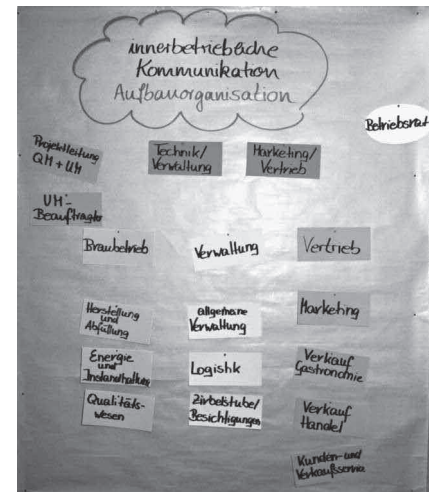 innerbetriebliche
Kommunikation
Aufbauorganisation
Betriebsrat
Projektleitung
QM + UM
Technik/
Verwaltung
Marketing/
Vertrieb
UM-
Beauftragter
Braubetrieb
Verwaltung
Vertrieb
Herstellung
und
Abfüllung
allgemeine
Verwaltung
Marketing
Energie
und
Instandhaltung
Logistik
Verkauf
Gastronomie
Qualitäts-
wesen
Zirbelstube/
Besichtigungen
Verkauf
Handel
Kunden- und
Verkaufsservice